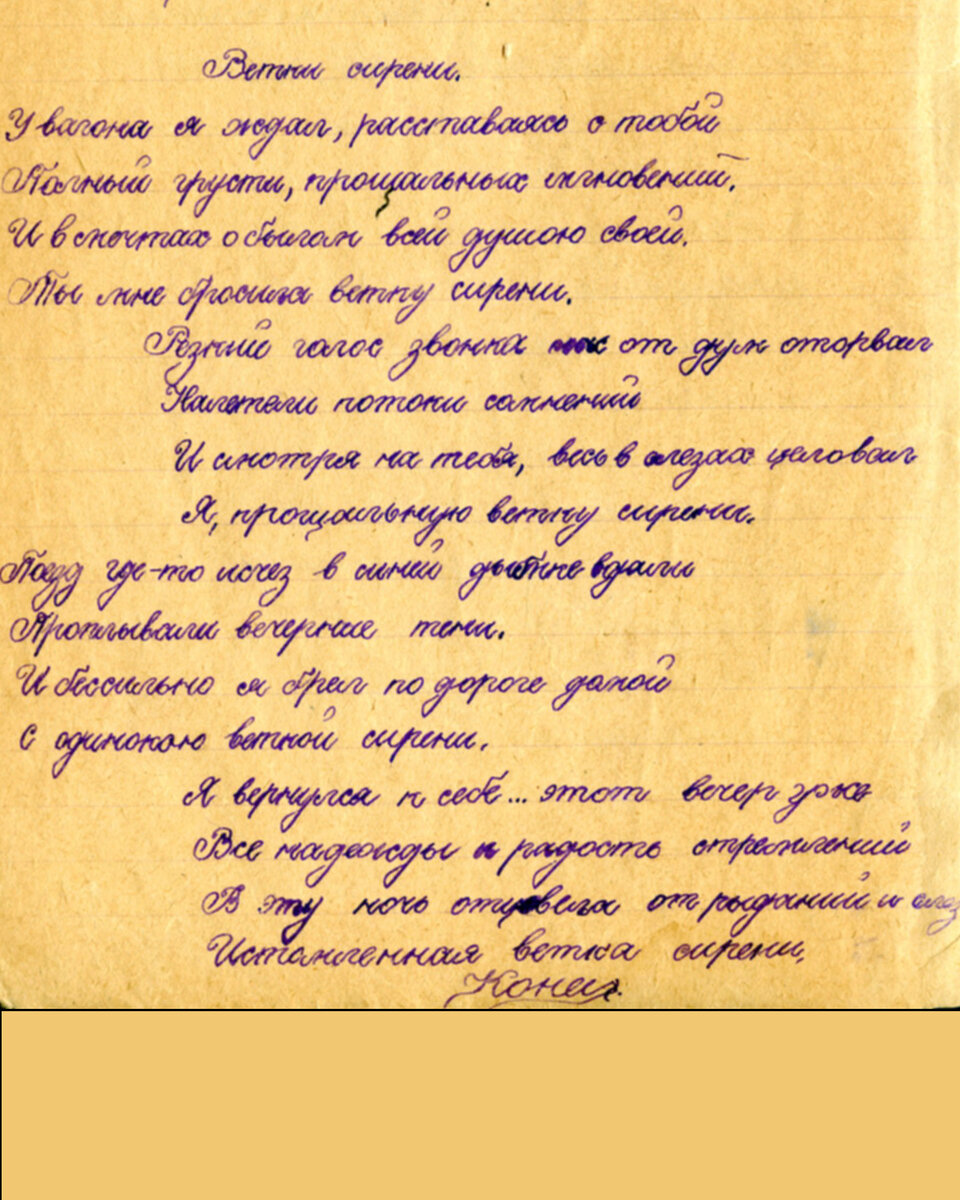 Ветки сирени.
У вагона я ждал, расставаясь с тобой
Полный грусти, прощальных мгновений.
И в мечтах о былом всей душою своей.
Ты мне бросила ветку сирени.
Резкий голос звонка от дум оторвал
Налетели потоки сомнений
И смотря на тебя, весь в слезах целовал
Я, прощальную ветку сирени.
Поезд где-то исчез в синей дымке вдали
Проплывали вечерние тени.
И бессильно я брел по дороге домой
С одинокою веткой сирени.
Я вернулся к себе... этот вечер
Все надежды и радость стремлений
В эту ночь отцвела от рыданий и слез
Истомленная ветка сирени.
Конец.